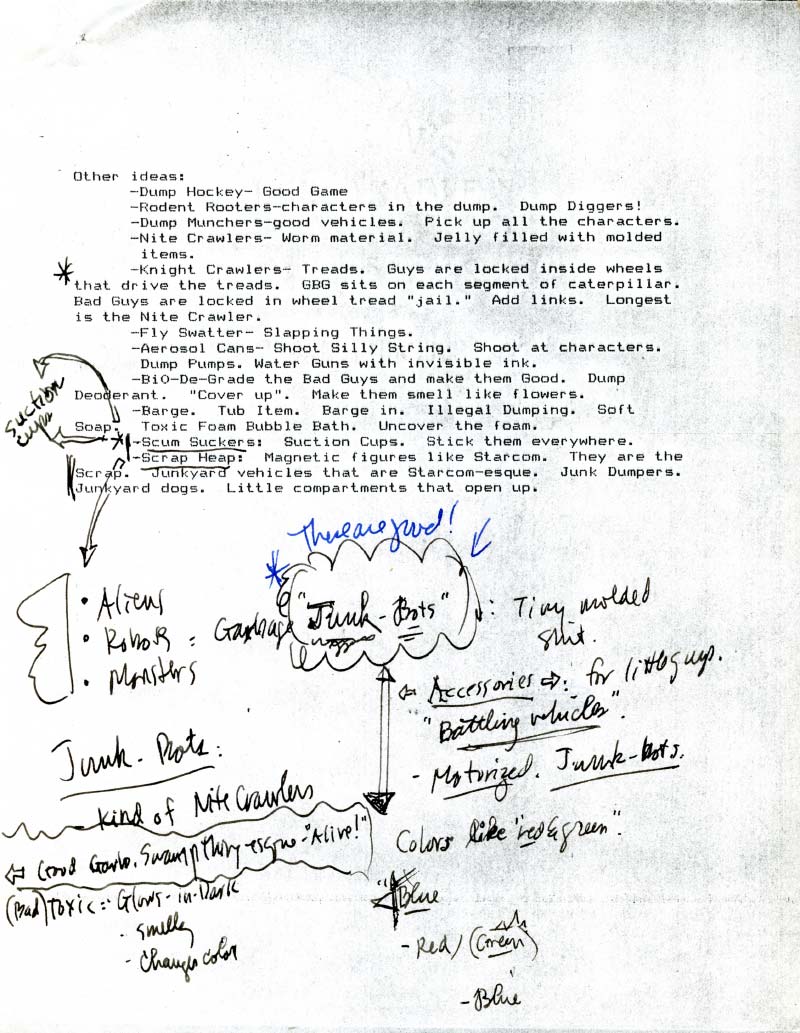 Other ideas:
-Dump Hockey- Good Game
-Rodent Rooters-characters in the dump.  Dump Diggers!
-Dump Munchers-good vehicles.  Pick up all the characters.
-Nite Crawlers- Worm material.  Jelly filled with molded
items.
* -Knight Crawlers- Treads.  Guys are locked inside wheels
that drive the treads.  GBG sits on each segment of caterpillar.
Bad Guys are locked in wheel tread "jail."  Add links.  Longest
is the Nite Crawler.
-Fly Swatter- Slapping Things.
-Aerosol Cans- Shoot Silly String.  Shoot at characters.
Dump Pumps. Water Guns with invisible ink.
-BiO-De-Grade the Bad Guys and make them Good.  Dump
Deoderant.  "Cover up".  Make them smell like flowers.
-Barge.  Tub Item.  Barge in.  Illegal Dumping.  Soft
Soap.  Toxic Foam Bubble Bath.  Uncover the foam.
suction
cups
* -Scum Suckers:  Suction Cups.  Stick them everywhere.
-Scrap Heap:  Magnetic figures like Starcom.  They are the
Scrap.  Junkyard vehicles that are Starcom-esque.  Junk Dumpers.
Junkyard dogs.  Little compartments that open up.
These are good!
• Aliens
• Robots = Garbage
• Monsters
* "Junk-Bots"
: Tiny molded
shit.
Accessories : for little guys.
"Battling vehicles".
- Motorized. Junk-bots.
Junk-Bots:
- kind of Nite Crawlers
Good Garb. Swamp thing-esque-"Alive!"
(Bad) Toxic = Glows-in-Dark
- smells
- changes color
Colors like "red & green".
Blue
- Red / (Green)
- Blue